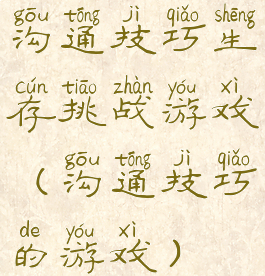 gōu tōng jì qiǎo shēng
沟通技巧生
cún tiāo zhàn yóu xì
存挑战游戏
gōu tōng jì qiǎo
（沟通技巧
de yóu xì
的游戏）